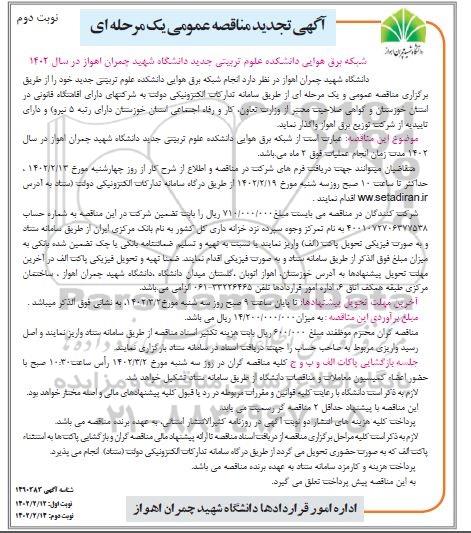 نوبت دوم
آگهی تجدید مناقصه عمومی یک مرحله ای
دانشگاه شهید چمران اهواز
شبکه برق هوایی دانشکده علوم تربیتی جدید دانشگاه شهید چمران اهواز در سال ۱۴۰۲
دانشگاه شهید چمران اهواز در نظر دارد انجام شبکه برق هوایی دانشکده علوم تربیتی جدید خود را از طریق
برگزاری مناقصه عمومی و یک مرحله ای از طریق سامانه تدارکات الکترونیکی دولت به شرکتهای دارای اقامتگاه قانونی در
استان خوزستان و گواهی صلاحیت معتبر از وزارت تعاون، کار و رفاه اجتماعی استان خوزستان دارای رتبه ۵ نیرو) و دارای
تاییدیه از شرکت توزیع برق اهواز واگذار نماید.
موضوع این مناقصه: عبارت است از شبکه برق هوایی دانشکده علوم تربیتی جدید دانشگاه شهید چمران اهواز در سال
۱۴۰۲ مدت زمان انجام عملیات فوق ۲ ماه می‌باشد.
متقاضیان میتوانند جهت دریافت فرم های شرکت در مناقصه و اطلاع از شرح کار از روز چهارشنبه مورخ ۱۴۰۲/۲/۱۳ ،
حداکثر تا ساعت ۱۰ صبح روزسه شنبه مورخ ۱۴۰۲/۲/۱۹ از طریق درگاه سامانه تدارکات الکترونیکی دولت (ستاد به آدرس
www.setadiran.ir اقدام نمایند .
شرکت کنندگان در مناقصه می بایست مبلغ ۷۱۰/۰۰۰/۰۰۰ ریال را بابت تضمین شرکت در این مناقصه به شماره حساب
۴۰۰۱۰۷۲۷۰۶۳۷۷۵۳۸ به نام تمرکز وجوه سپرده نزد خزانه داری کل کشور به نام بانک مرکزی ایران از طریق سامانه ستاد
و به صورت فیزیکی تحویل پاکت (الف) واریز نمایند یا نسبت به تهیه و تسلیم ضمانتنامه بانکی یا چک تضمین شده بانکی به
میزان مبلغ فوق الذکر از طریق سامانه ستاد و به صورت فیزیکی اقدام نمایند. ضمنا تهیه و تحویل فیزیکی پاکت الف در آخرین
مهلت تحویل پیشنهادها به آدرس خوزستان، اهواز اتوبان ،گلستان میدان دانشگاه ،دانشگاه شهید چمران اهواز ، ساختمان
مرکزی طبقه همکف اتاق ۶، اداره امور قراردادها تلفن ۳۳۲۲۶۴۶۵-۰۶۱ الزامی می باشد.
آخرین مهلت تحویل پیشنهادها: تا پایان ساعت ۹ صبح روز سه شنبه مورخ۱۴۰۲/۳/۲، به نشانی فوق الذکر میباشد .
مبلغ برآوردی این مناقصه : به میزان ۱۴/۲۰۰/۰۰۰/۰۰۰ ریال می باشد.
مناقصه گران محترم موظفند مبلغ ۶۰۰/۰۰۰ ریال بابت هزینه تکثیر اسناد مناقصه از طریق سامانه ستاد واریز نمایند و اصل
رسید واریزی مربوط به صاحب حساب را جهت دریافت اسناد در سامانه ستاد بارگزاری نمایند.
جلسه بازگشایی پاکات الف و ب و ج کلیه مناقصه گران در روز سه شنبه مورخ ۱۴۰۲/۳/۲ رأس ساعت۱۰:۳۰ صبح با
حضور اعضاء کمیسیون معاملات و مناقصات دانشگاه از طریق سامانه ستاد تشکیل خواهد شد.
لازم به ذکر است دانشگاه با رعایت کلیه قوانین و مقررات مربوطه در رد یا قبول کلیه پیشنهادهای مالی و اصله مختار خواهد بود.
این مناقصه با پیشنهاد حداقل ۲ مناقصه گر رسمیت می یابد.
پرداخت کلیه هزینه های انتشار دو نوبت آگهی در روزنامه کثیرالانتشار استانی، به عهده برنده مناقصه می باشد.
لازم به ذکر است کلیه مراحل برگزاری مناقصه از دریافت اسناد مناقصه تا ارائه پیشنهاد مالی مناقصه گران و بازگشایی پاکت‌ها به استثناء
پاکت الف که به صورت حضوری تحویل می گردد از طریق درگاه سامانه تدارکات الکترونیکی دولت (ستاد)، انجام می پذیرد.
پرداخت هزینه و کارمزد سامانه ستاد به عهده برنده مناقصه می باشد.
به این مناقصه پیش پرداخت تعلق می گیرد.
شناسه آگهی ۱۴۹۰۳۸۳
نوبت اول: ۱۴۰۲/۲/۱۲
نوبت دوم: ۱۴۰۲/۲/۱۴
اداره امور قراردادها دانشگاه شهید چمران اهواز